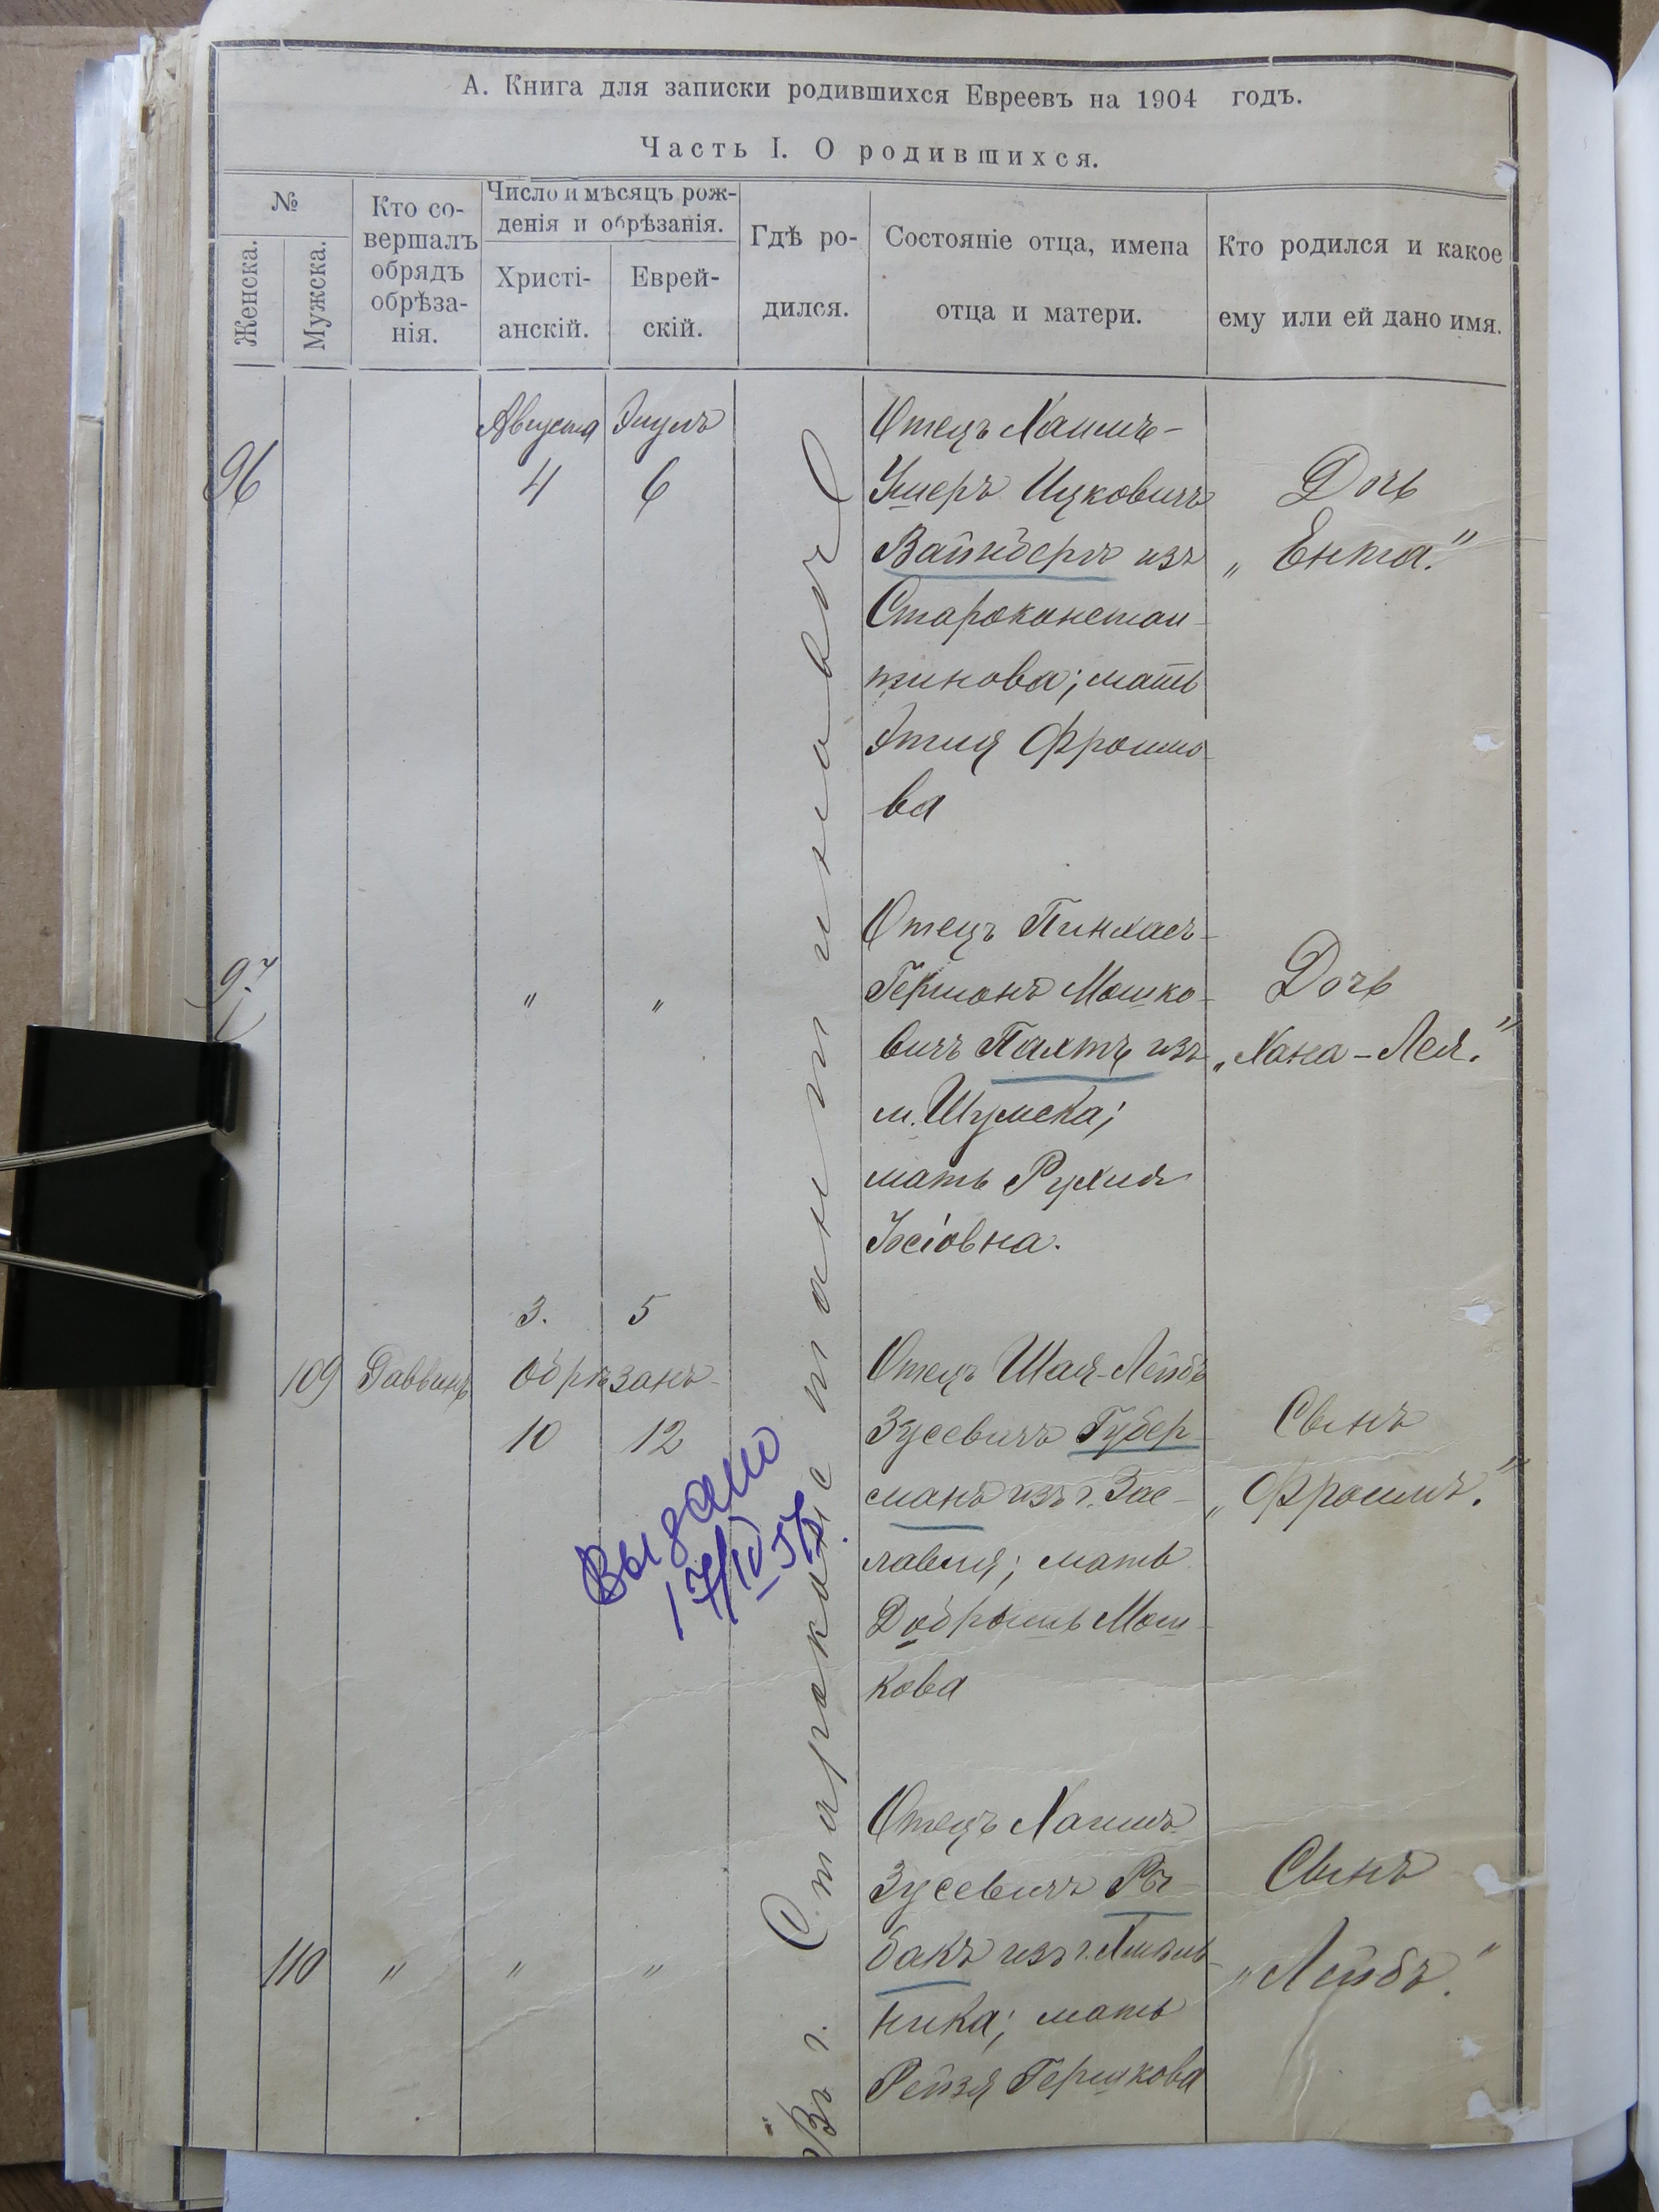 А. Книга для записки родившихся Евреевъ на 1904 годъ.
Часть I. О родившихся.
№
Женска.
Мужска.
Кто со-
вершалъ
обрядъ
обрѣза-
нія.
Число и мѣсяцъ рож-
денія и обрѣзанія.
Христі-
анскій.
Еврей-
скій.
Гдѣ ро-
дился.
Состояніе отца, имена
отца и матери.
Кто родился и какое
ему или ей дано имя.
Въ г. Староконстантиновѣ
Августа Элулъ
96 4 6
Отецъ Хаимъ-
Ушеръ Ицковичъ
Вайнберъ изъ
Староконстан-
тинова; мать
Этля Фроимо-
ва
Дочь
„Ента."
97 " "
Отецъ Пинхасъ-
Гершонъ Мошко-
вичъ Пахтъ изъ
м. Шумска;
мать Рухля
Іосіовна.
Дочь
„Хана-Лея."
3. 5
109 Раввинъ обрѣзанъ
10 12
Отецъ Шая-Лейбъ
Зусевичъ Губер-
манъ изъ г. Зас-
лавля; мать
Добрышъ Мош-
кова
Сынъ
„Фроимъ."
Выдано
17/IV 57.
110 " " "
Отецъ Хаимъ
Зусевичъ Ры-
бакъ изъ г. Хмѣль-
ника; мать
Рейзя Гершкова
Сынъ
„Лейбъ."